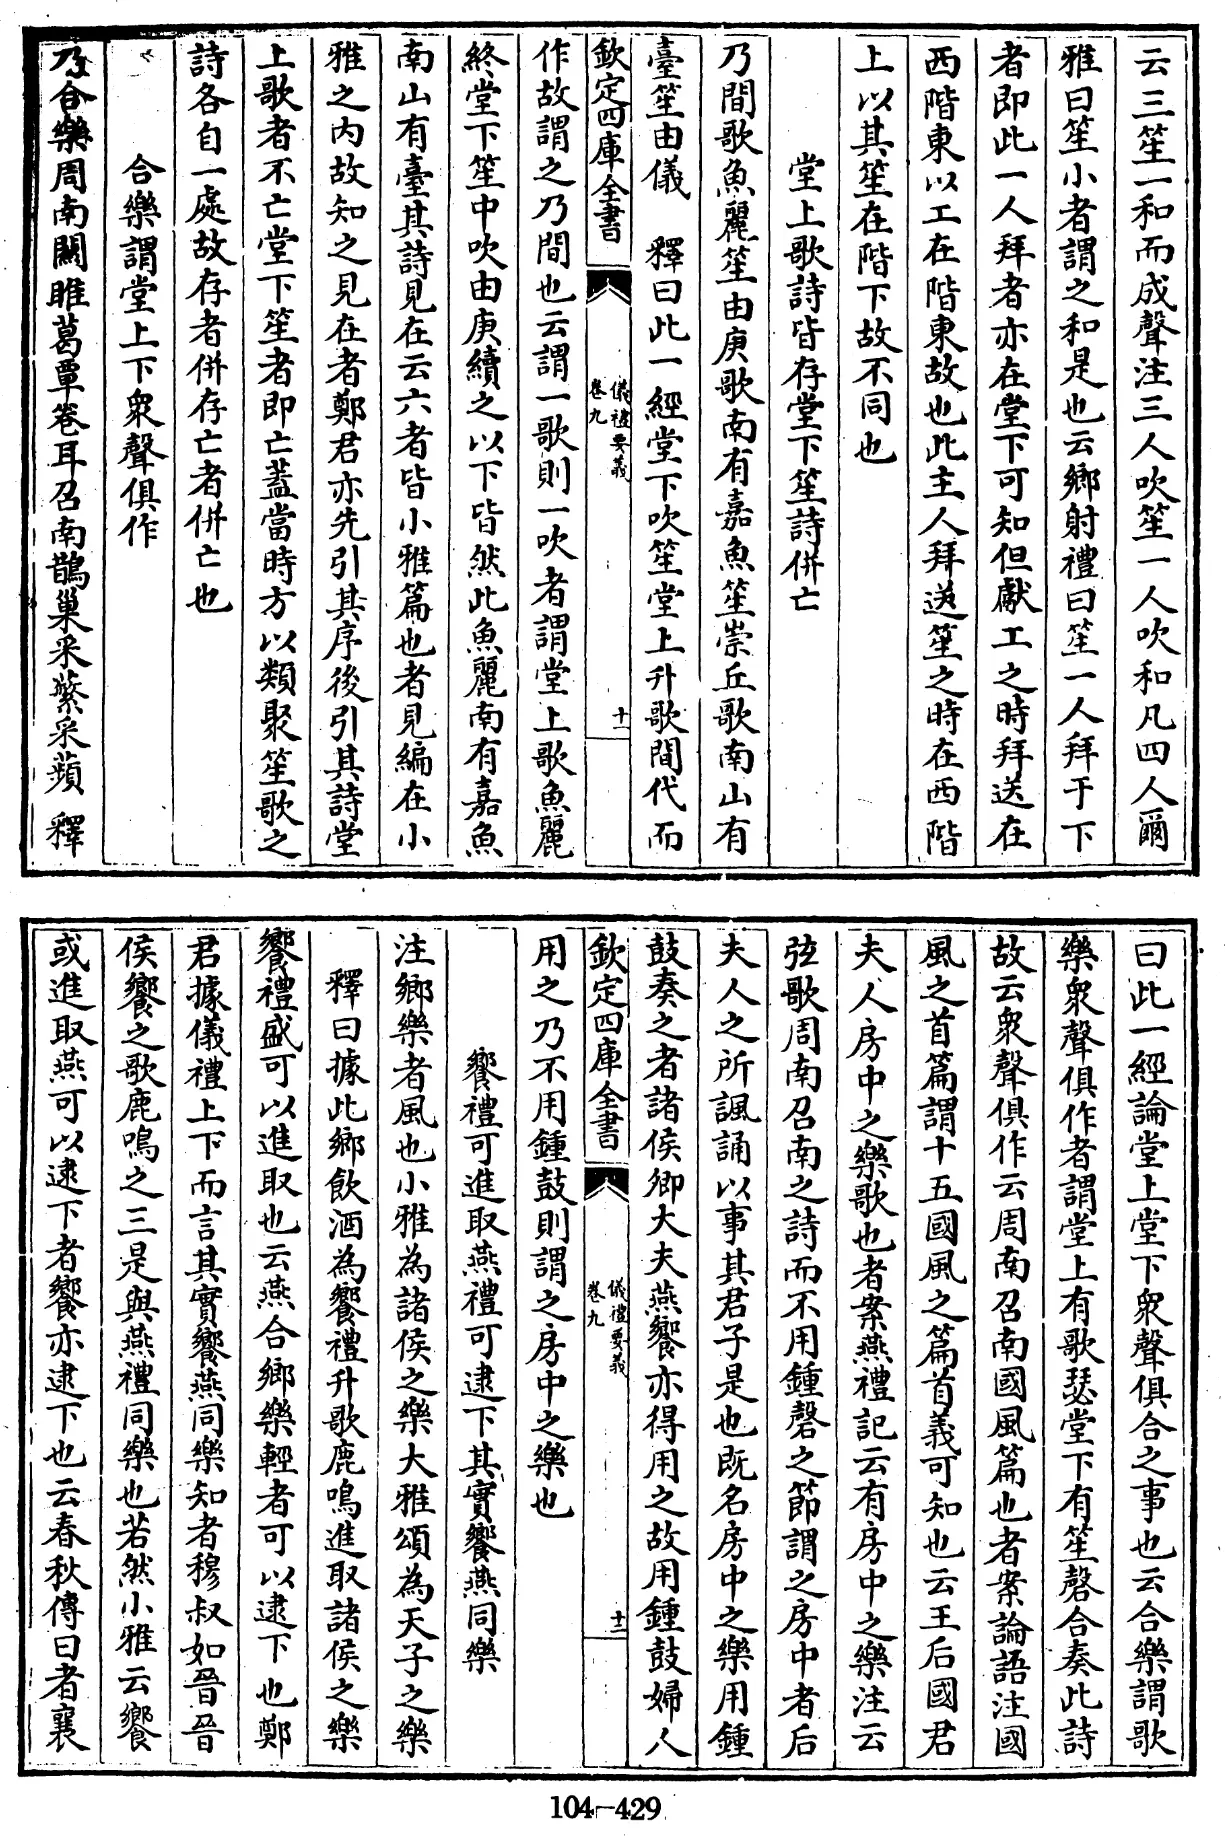 云三笙一和而成聲注三人吹笙一人吹和凡四人爾
雅曰笙小者謂之和是也云鄉射禮曰笙一人拜于下
者即此一人拜者亦在堂下可知但獻工之時拜送在
西階東以工在階東故也此主人拜送笙之時在西階
上以其笙在階下故不同也
堂上歌詩皆存堂下笙詩併亡
乃間歌魚麗笙由庚歌南有嘉魚笙崇丘歌南山有
臺笙由儀　釋曰此一經堂下吹笙堂上升歌間代而
欽定四庫全書
儀禮要義
卷九
十一
作故謂之乃間也云謂一歌則一吹者謂堂上歌魚麗
終堂下笙中吹由庚續之以下皆然此魚麗南有嘉魚
南山有臺其詩見在云六者皆小雅篇也者見編在小
雅之内故知之見在者鄭君亦先引其序後引其詩堂
上歌者不亡堂下笙者即亡蓋當時方以類聚笙歌之
詩各自一處故存者併存亡者併亡也
合樂謂堂上下衆聲俱作
乃合樂周南關雎葛覃卷耳召南鵲巢采蘩采蘋　釋
曰此一經論堂上堂下衆聲俱合之事也云合樂謂歌
樂衆聲俱作者謂堂上有歌瑟堂下有笙磬合奏此詩
故云衆聲俱作云周南召南國風篇也者案論語注國
風之首篇謂十五國風之篇首義可知也云王后國君
夫人房中之樂歌也者案燕禮記云有房中之樂注云
弦歌周南召南之詩而不用鍾磬之節謂之房中者后
夫人之所諷誦以事其君子是也既名房中之樂用鍾
鼓奏之者諸侯卿大夫燕饗亦得用之故用鍾鼓婦人
欽定四庫全書
儀禮要義
卷九
十二
用之乃不用鍾鼓則謂之房中之樂也
饗禮可進取燕禮可逮下其實饗燕同樂
注鄉樂者風也小雅為諸侯之樂大雅頌為天子之樂
釋曰據此鄉飲酒為饗禮升歌鹿鳴進取諸侯之樂
饗禮盛可以進取也云燕合鄉樂輕者可以逮下也鄭
君據儀禮上下而言其實饗燕同樂知者穆叔如晉晉
侯饗之歌鹿鳴之三是與燕禮同樂也若然小雅云饗
或進取燕可以逮下者饗亦逮下也云春秋傳曰者襄
104-429